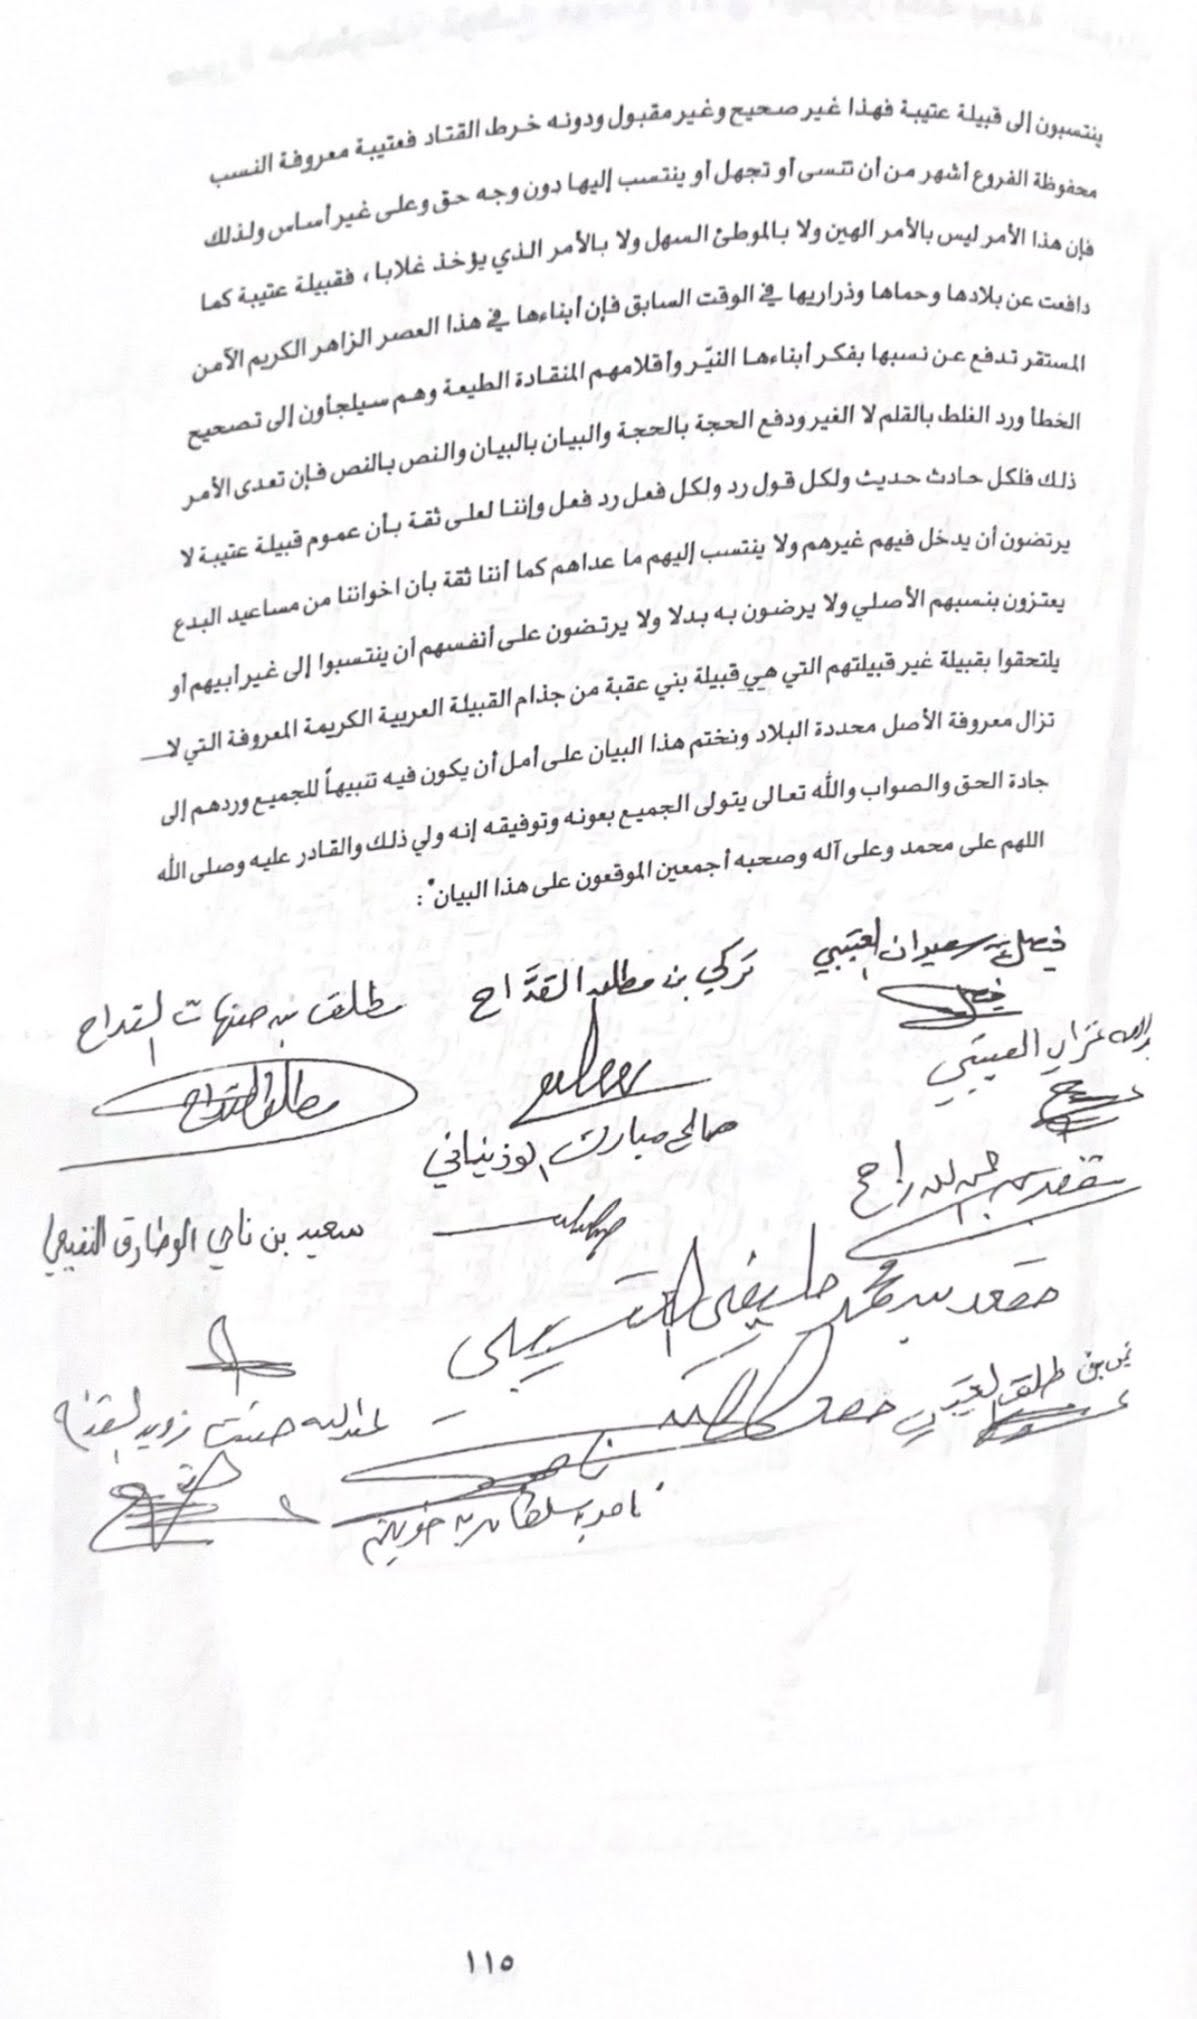 ينتسبون إلى قبيلة عتيبة فهذا غير صحيح وغير مقبول ودونه خرط القتاد فعتيبة معروفة النسب
محفوظة الفروع أشهر من أن تنسى أو تجهل أو ينتسب إليها دون وجه حق وعلى غير أساس ولذلك
فإن هذا الأمر ليس بالأمر الهين ولا بالموطئ السهل ولا بالأمر الذي يؤخذ غلابا، فقبيلة عتيبة كما
دافعت عن بلادها وحماها وذراريها في الوقت السابق فإن أبناءها في هذا العصر الزاهر الكريم الآمن
المستقر تدفع عن نسبها بفكر أبناءها النيّر وأقلامهم المنقادة الطيعة وهم سيلجأون إلى تصحيح
الخطأ ورد الغلط بالقلم لا الغير ودفع الحجة بالحجة والبيان بالبيان والنص بالنص فإن تعدى الأمر
ذلك فلكل حادث حديث ولكل قول رد ولكل فعل رد فعل وإننا لعلى ثقة بأن عموم قبيلة عتيبة لا
يرتضون أن يدخل فيهم غيرهم ولا ينتسب إليهم ما عداهم كما أننا ثقة بأن اخواننا من مساعيد البدع
يعتزون بنسبهم الأصلي ولا يرضون به بدلا ولا يرتضون على أنفسهم أن ينتسبوا إلى غير أبيهم أو
يلتحقوا بقبيلة غير قبيلتهم التي هي قبيلة بني عقبة من جذام القبيلة العربية الكريمة المعروفة التي لا
تزال معروفة الأصل محددة البلاد ونختم هذا البيان على أمل أن يكون فيه تنبيهاً للجميع وردهم إلى
جادة الحق والصواب والله تعالى يتولى الجميع بعونه وتوفيقه إنه ولي ذلك والقادر عليه وصلى الله
اللهم على محمد وعلى آله وصحبه أجمعين الموقعون على هذا البيان" :
فيصل بن سعيدان العتيبي
تركي بن مطلق القدَّاح
مطلق بن صنهات القداح
العتيبي
مطلق القداح
صالح مبارك الوذيناني
سعيد بن ناجي الوطارق النفيعي
مقعد بن محمد
عبدالله
ناصر بن سلطان بن
١١٥